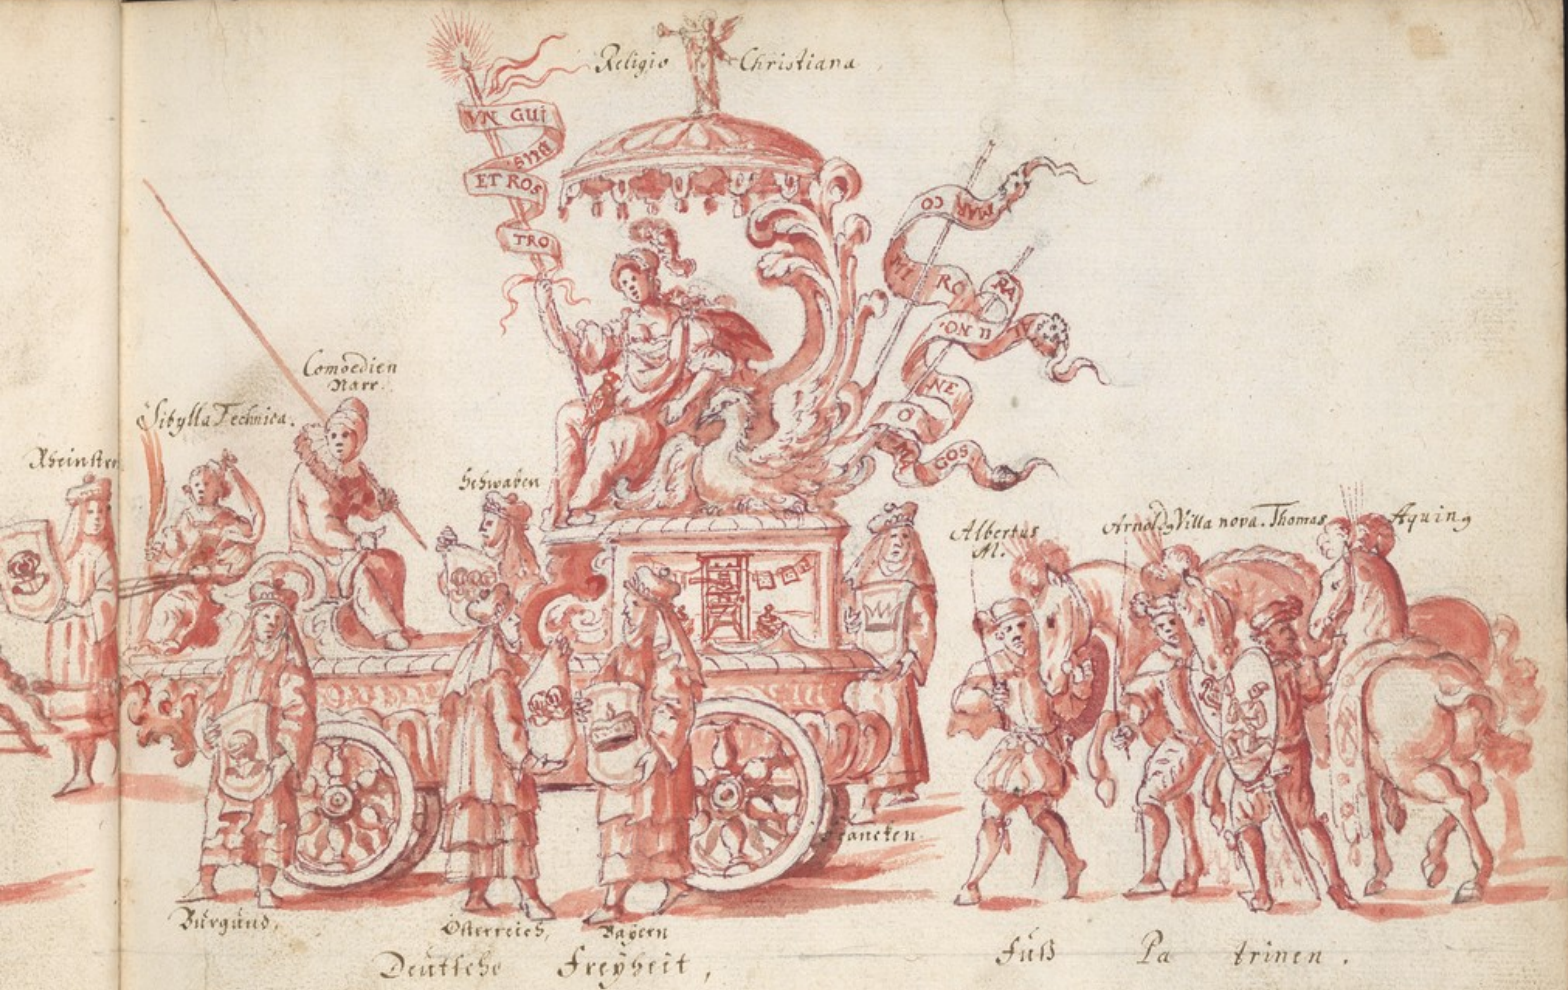 Religio Christiana
VN GUI
BUS.
ET ROS
TRO
MAR CO
RO
RA
NE
GOS.
Comoedien
Narr.
Sibylla Technica.
Schwaben
Albertus
M.
Arnold9 Villa nova. Thomas Aquin9
Burgund.
Österreich,
Bayern
Deütsche Freÿheit,
Füß Pa trinen.